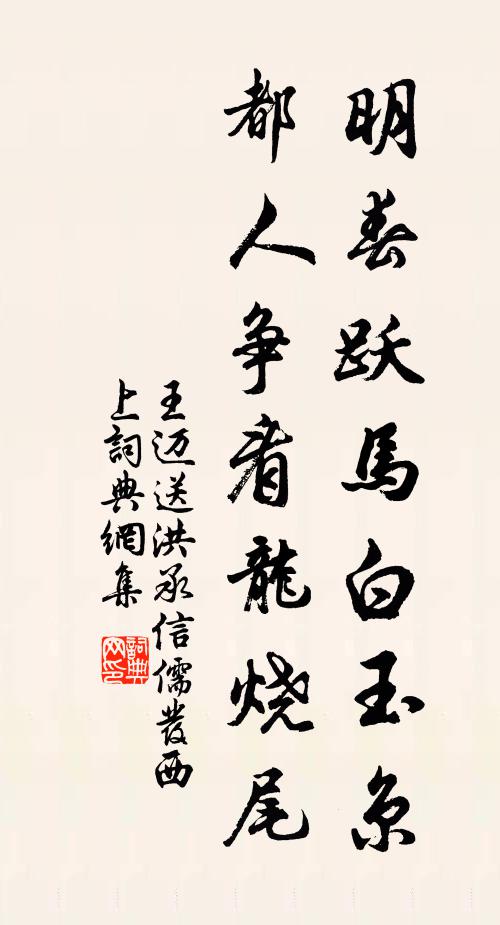 明春跃馬白玉京
都人争看龍烧尾
王迈送洪承信儒發西
上詞典網集
詞典
网印